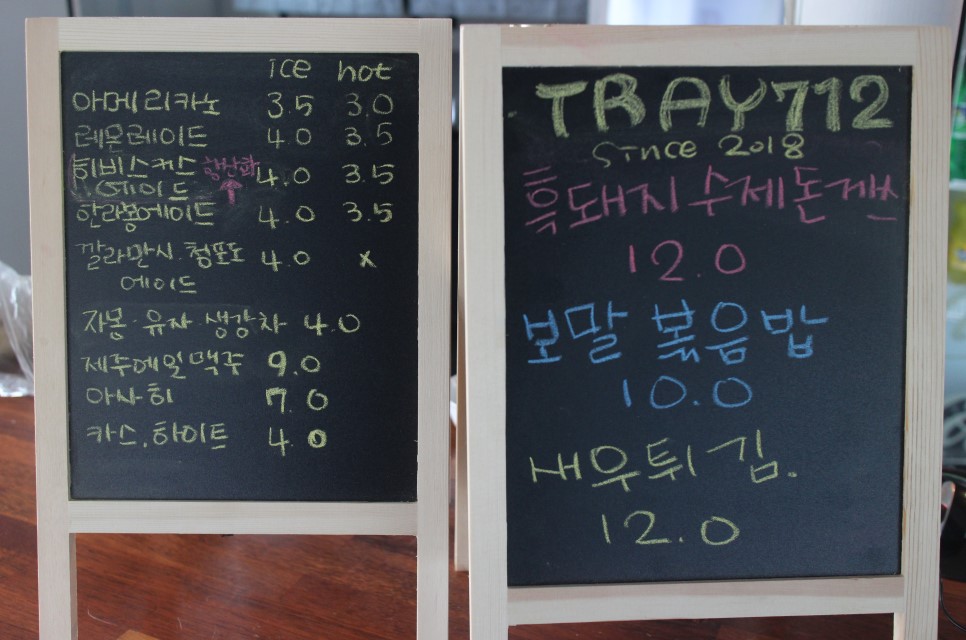 ice hot
아메리카노 3.5 3.0
레몬레이드 4.0 3.5
히비스커스 4.0 3.5
에이드
한라봉에이드 4.0 3.5
깔라만시.청포도 4.0 x
에이드
자몽·유자·생강차 4.0
제주에일맥주 9.0
아사히 7.0
카스.하이트 4.0
TRAY712
since 2018
흑돼지 수제돈까스
12.0
보말 볶음밥
10.0
새우튀김.
12.0